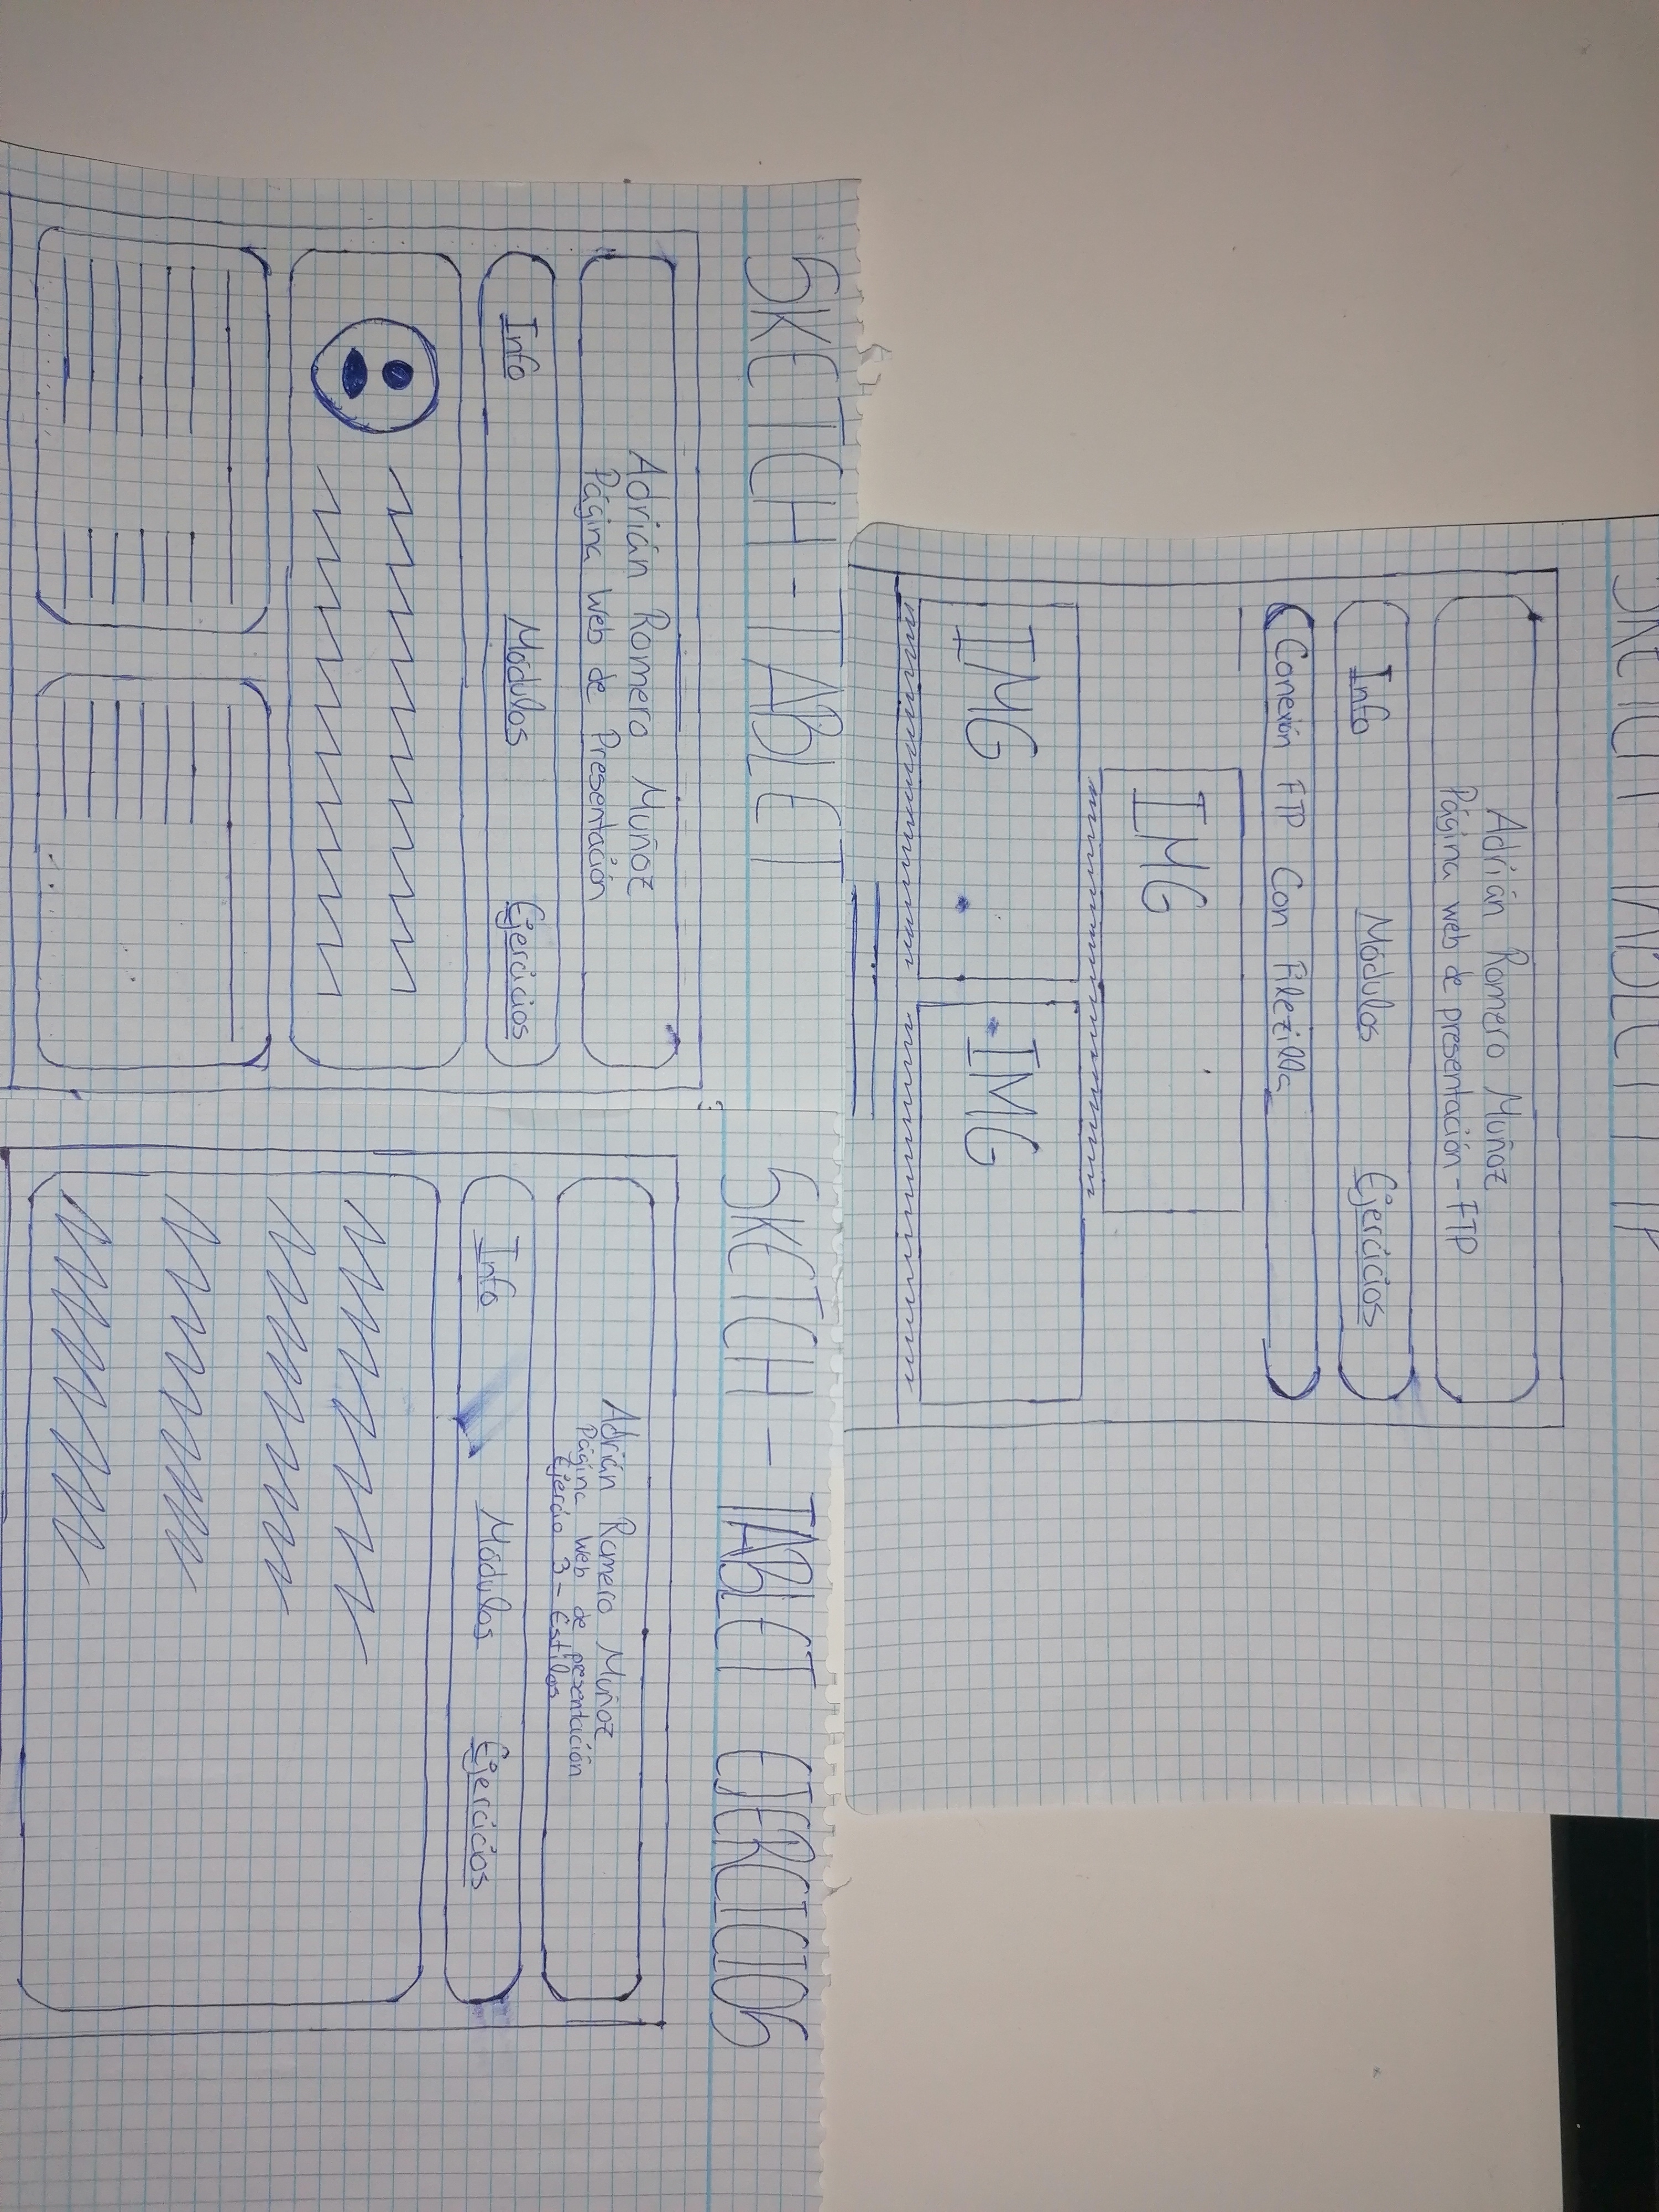 SKETCH - TABLET FTP
Adrián Romero Muñoz
Página web de presentación - FTP
Info Módulos Ejercicios
Conexión FTP Con Filezilla
IMG
IMG IMG
SKETCH - TABLET
Adrián Romero Muñoz
Página Web de Presentación
Info Módulos Ejercicios
SKETCH - TABLET EJERCICIOS
Adrián Romero Muñoz
Página Web de presentación
Ejercio 3 - Estilos
Info Módulos Ejercicios